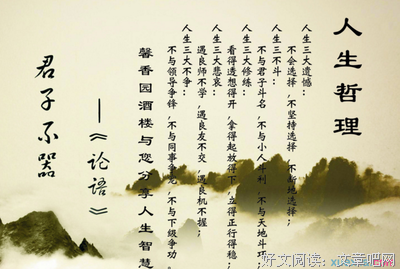 人生哲理
人生三大遗憾：
不会选择，不坚持选择，不断地选择；
人生三不斗：
不与君子斗名，不与小人斗利，不与天地斗巧；
人生三大修练：
看得透想得开，拿得起放得下，立得正行得稳；
人生三大悲哀：
遇良师不学，遇良友不交，遇良机不握；
人生三大不争：
不与领导争锋，不与同事争宠，不与下级争功。
馨香园酒楼与您分享人生智慧
——《论语》
君子不器
好文阅读：文章吧网